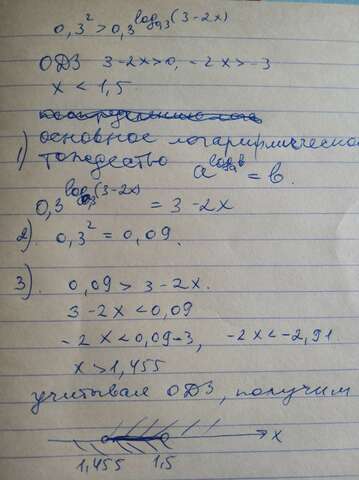 0,3² > 0,3^log₀,₃(3-2x)
ОДЗ 3-2x>0, -2x>-3
x < 1,5
1) основное логарифмическое
тождество a^logₐb = b.
0,3^log₀,₃(3-2x) = 3-2x
2). 0,3² = 0,09.
3). 0,09 > 3-2x.
3-2x < 0,09
-2x < 0,09-3, -2x < -2,91
x > 1,455
учитывая ОДЗ, получим
x
1,455 1,5